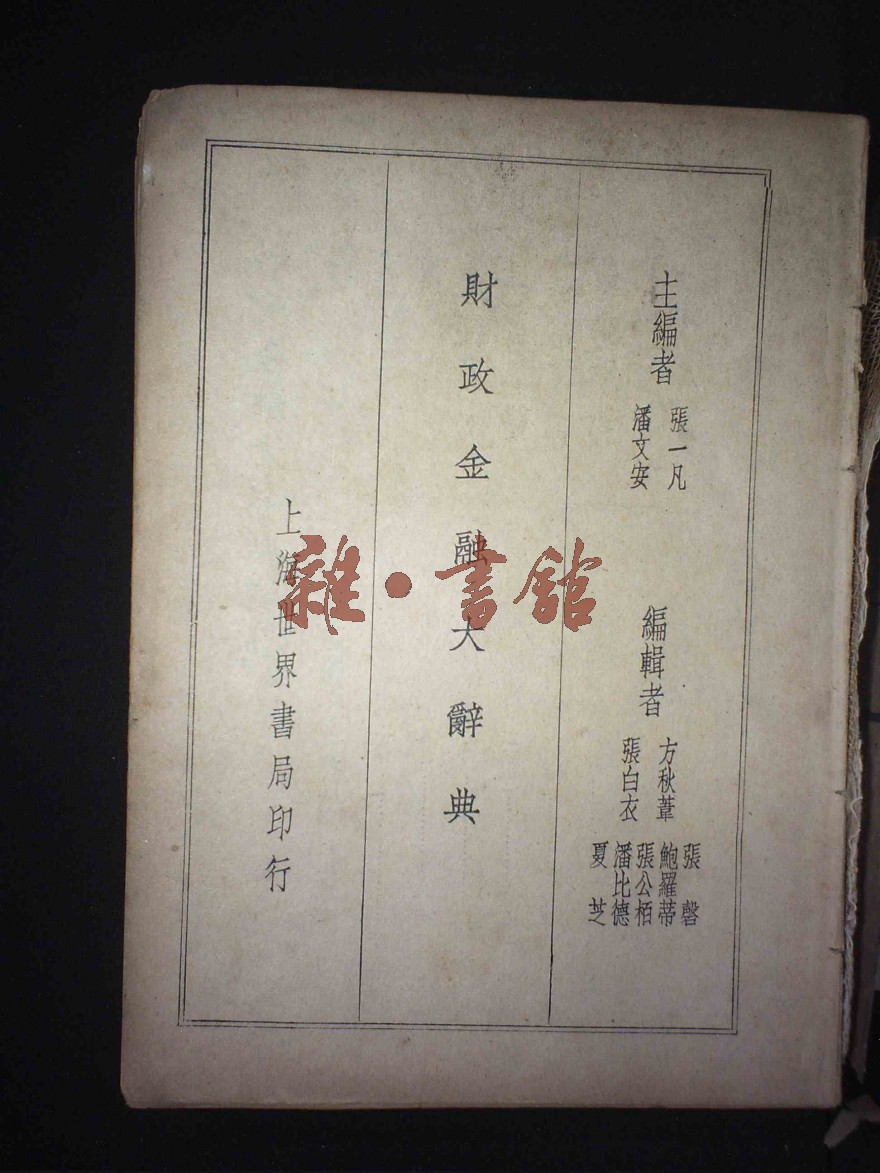 主編者
張一凡
潘文安
編輯者
方秋葦
張白衣
張磬
鮑羅蒂
張公栢
潘比德
夏芝
財政金融大辭典
上海世界書局印行
雜·書館